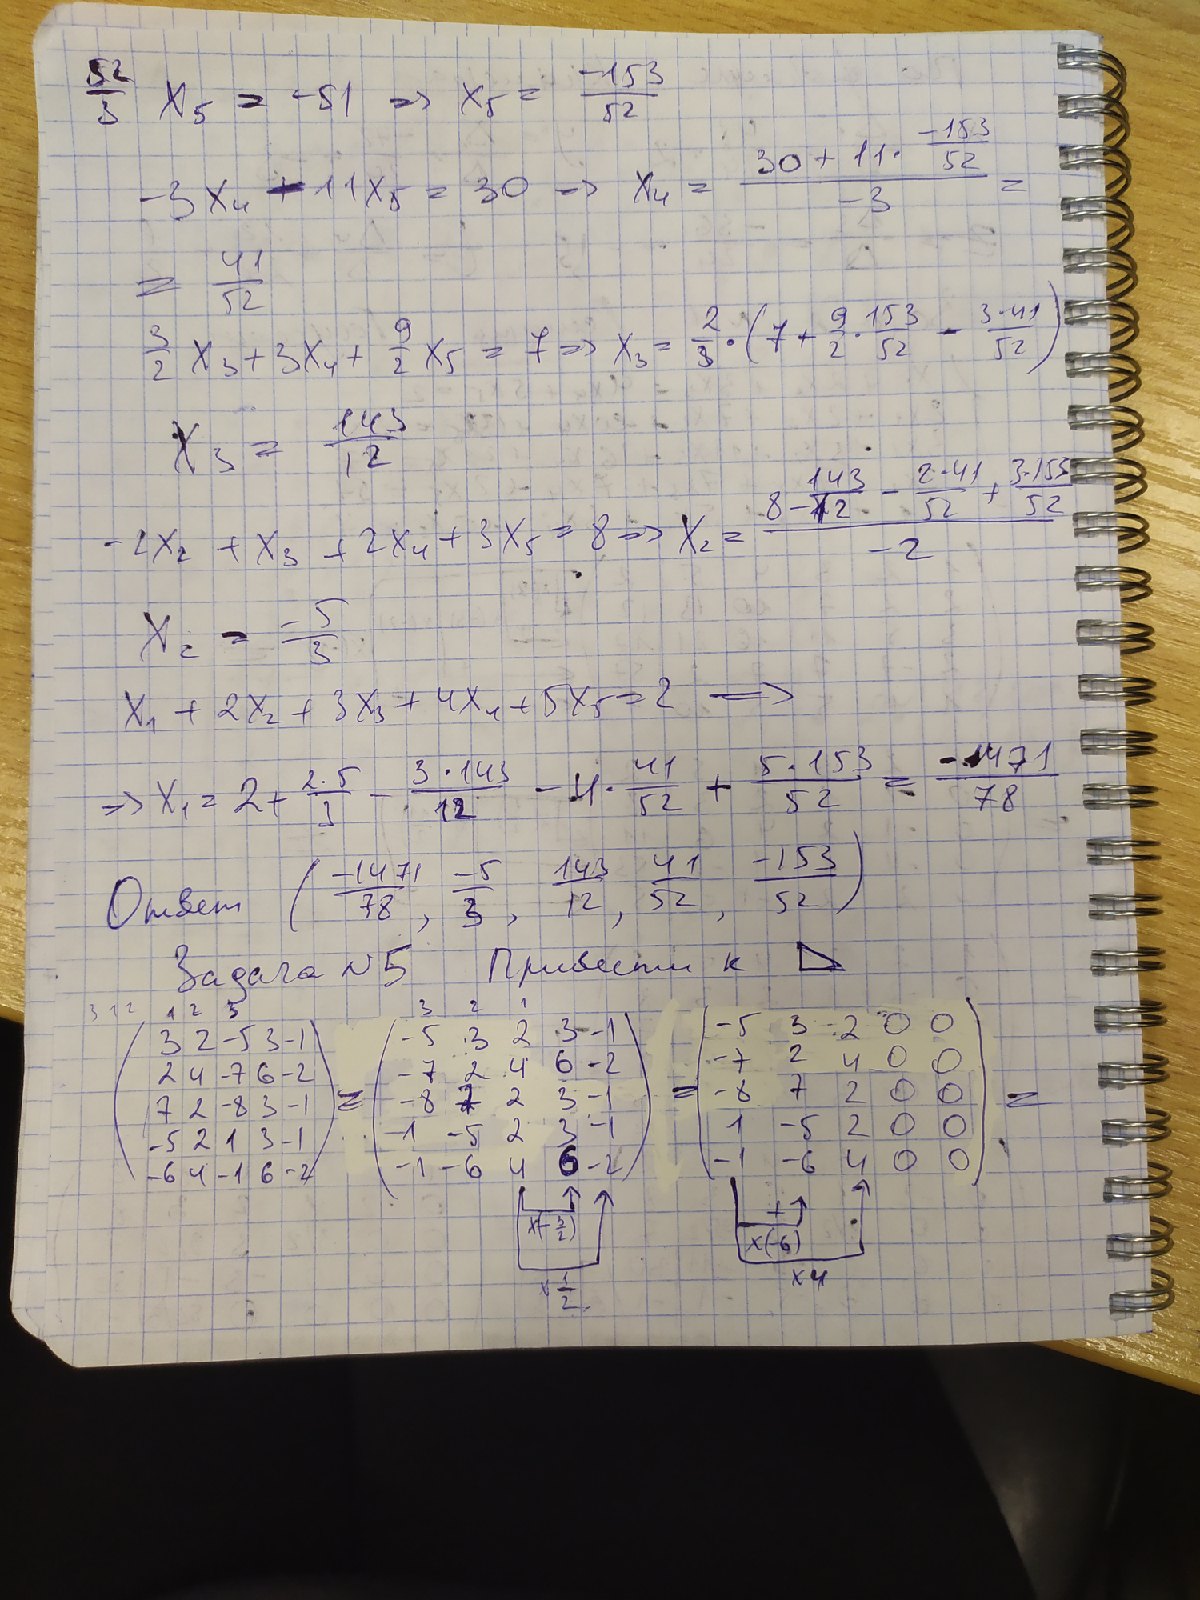 52/3 x₅ = -51 => x₅ = -153/52
-3x₄ + 11x₅ = 30 => x₄ = (30 + 11 · -153/52)/-3 =
= 41/52
3/2 x₃ + 3x₄ + 9/2 x₅ = 7 => x₃ = 2/3 · (7 + 9/2 · 153/52 - 3·41/52)
x₃ = 143/12
-2x₂ + x₃ + 2x₄ + 3x₅ = 8 => x₂ = (8 - 143/12 - 2·41/52 + 3·153/52)/-2
x₂ = -5/3
x₁ + 2x₂ + 3x₃ + 4x₄ + 5x₅ = 2 =>
=> x₁ = 2 + 2·5/3 - 3·143/12 - 4 · 41/52 + 5·153/52 = -1471/78
Ответ (-1471/78, -5/3, 143/12, 41/52, -153/52)
Задача №5 Привести к ◺
3 1 2 1 2 3 3 2 1
(3 2 -5 3 -1) = (-5 3 2 3 -1) = (-5 3 2 0 0) =
(2 4 -7 6 -2) (-7 2 4 6 -2) (-7 2 4 0 0)
(7 2 -8 3 -1) (-8 7 2 3 -1) (-8 7 2 0 0)
(-5 2 1 3 -1) (1 -5 2 3 -1) (1 -5 2 0 0)
(-6 4 -1 6 -2) (-1 -6 4 6 -2) (-1 -6 4 0 0)
x(-3/2) +
x(-6)
x 1/2 x4